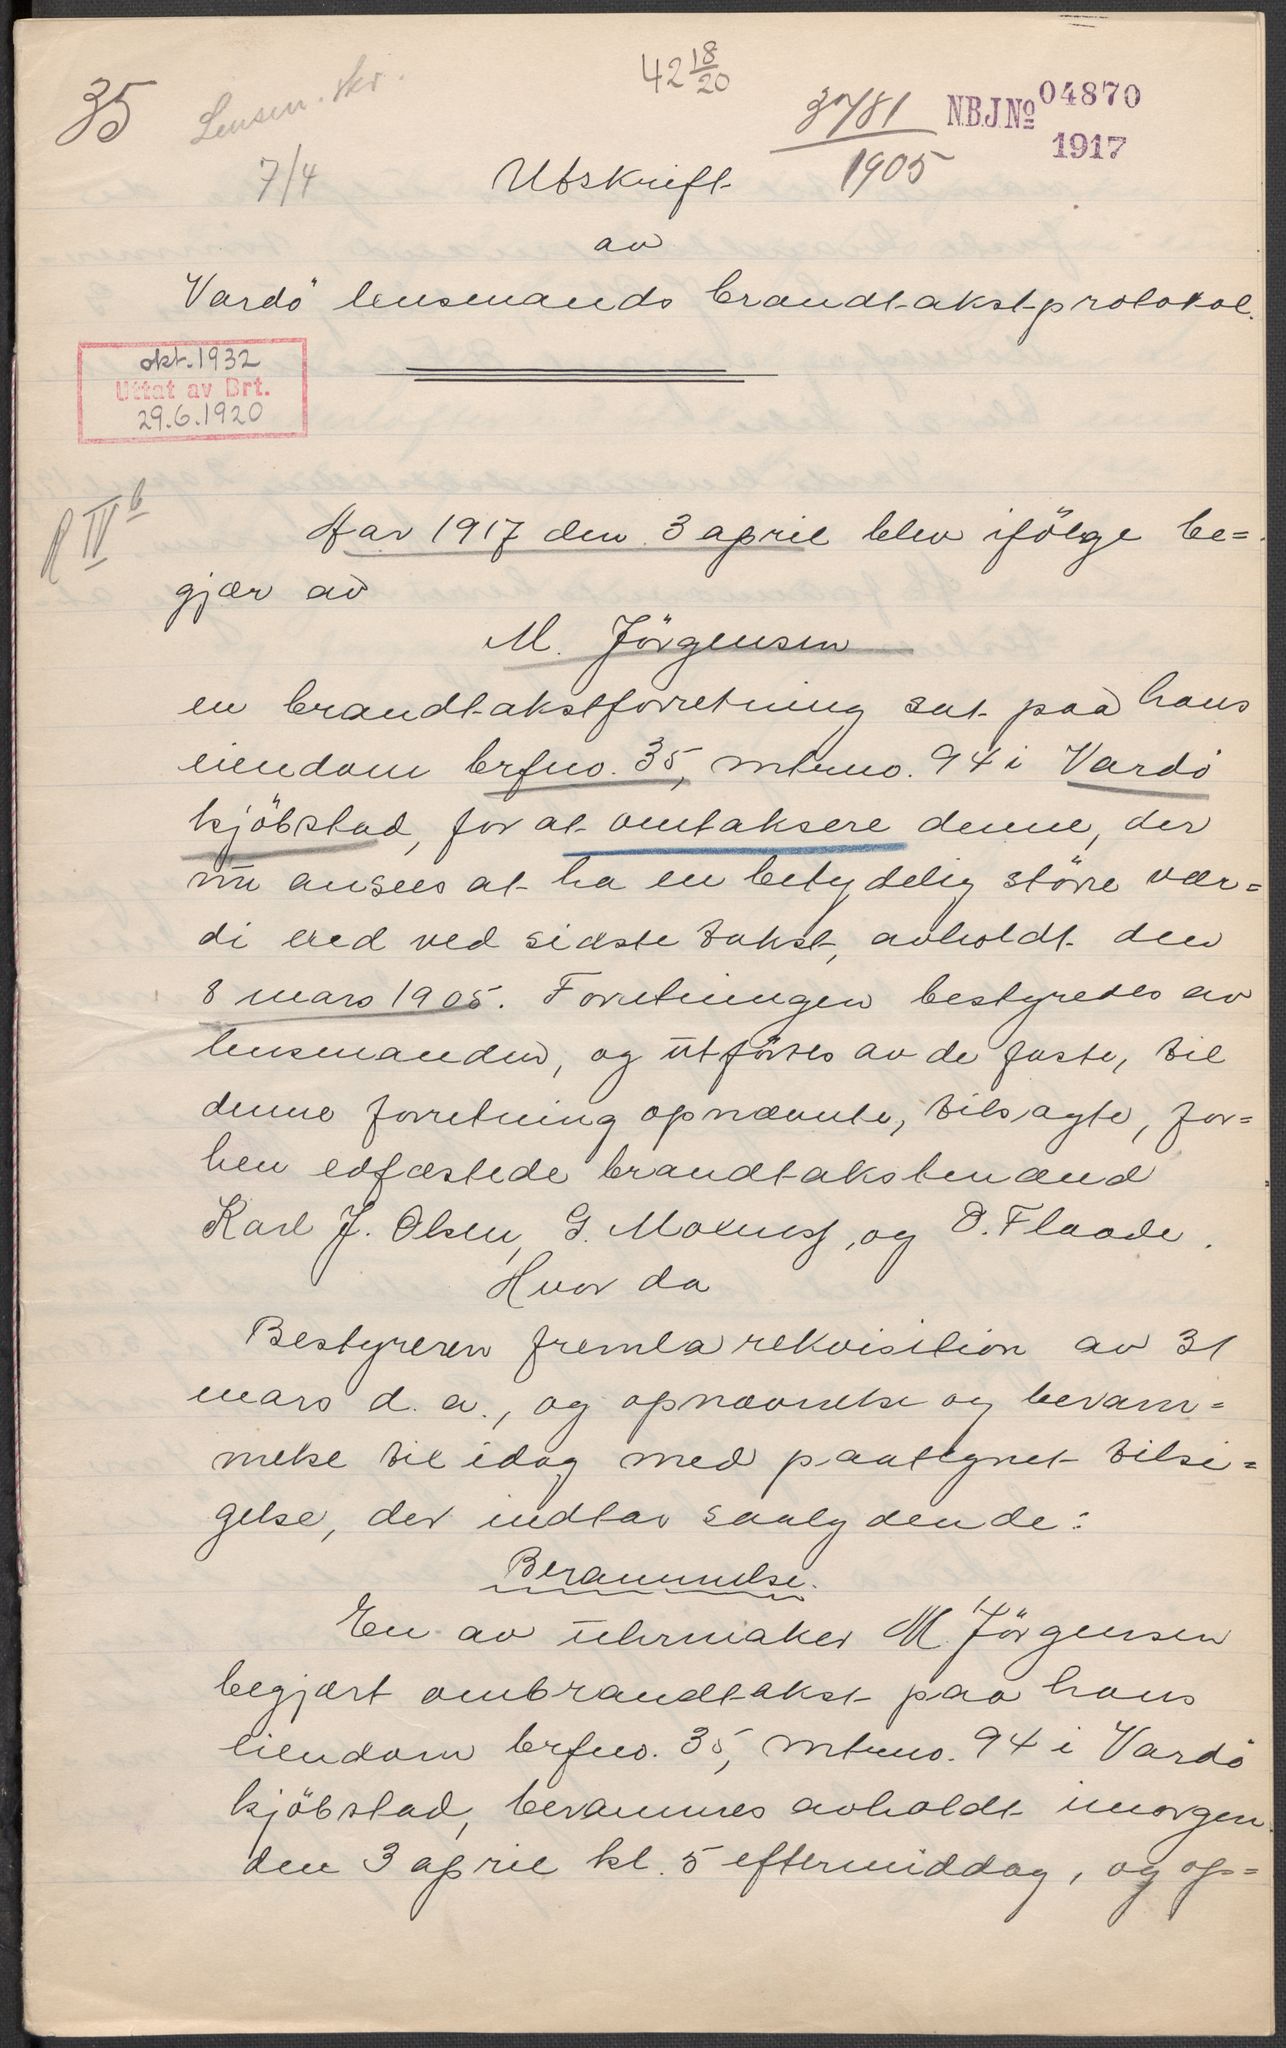 35
Lensm. skr.
7/4
42 18/20
3781
1905
N.B.J.No 04870
1917
Utskrift
av
Vardö lensmands brandtakstprotokol.
okt. 1932
Uttat av Brt.
29.6.1920
R IV b
Aar 1917 den 3 april blev ifölge be=
gjær av
M. Jörgensen
en brandtakstforretning sat paa hans
eiendom brfno. 35, mtrno. 94 i Vardö
kjöbstad, for at omtaksere denne, der
nu ansees at ha en betydelig större vær=
di end ved sidste takst, avholdt den
8 mars 1905. Forretningen bestyredes av
lensmanden, og utförtes av de faste, til
denne forretning opnævnte, tilsagte, for=
hen edfæstede brandtakstmænd
Karl J. Olsen, G. Moxness, og O. Flaade.
Hvor da
Bestyreren fremla rekvisition av 31
mars d. a., og opnævnelse og beram=
melse til idag med paategnet tilsi=
gelse, der indtar saalydende:
Berammelse.
En av uhrmaker M. Jörgensen
begjært ombrandtakst paa hans
eiendom brfno. 35, mtrno. 94 i Vardö
kjöbstad, berammes avholdt imorgen
den 3 april kl. 5 eftermiddag, og op=